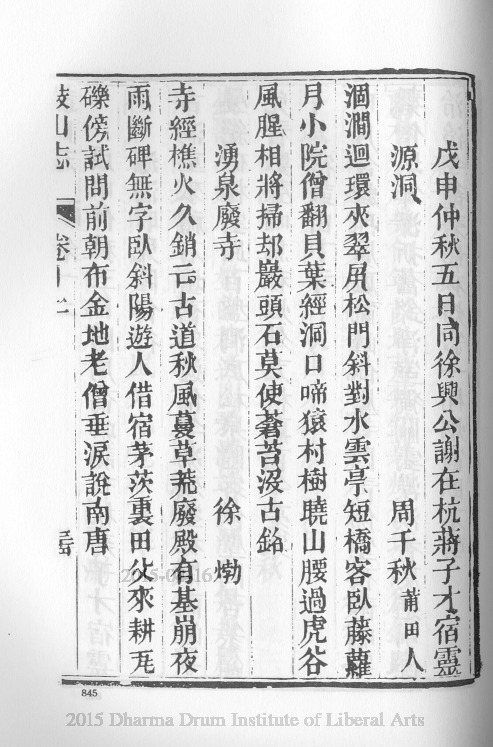 戊申仲秋五日同徐興公謝在杭蔣子才宿靈
源洞 周千秋 莆田人
涸澗迴環夾翠屏松門斜對水雲亭短橋客臥藤蘿
月小院僧翻貝葉經洞口啼猿村樹曉山腰過虎谷
風腥相將掃却巖頭石莫使蒼苔沒古銘
湧泉廢寺 徐𤊹
寺經樵火久銷亡古道秋風蔓草荒廢殿有基崩夜
雨斷碑無字臥斜陽遊人借宿茅茨裏田父來耕瓦
礫傍試問前朝布金地老僧垂淚說南唐
鼓山志 卷
845
2015 Dharma Drum Institute of Liberal Arts